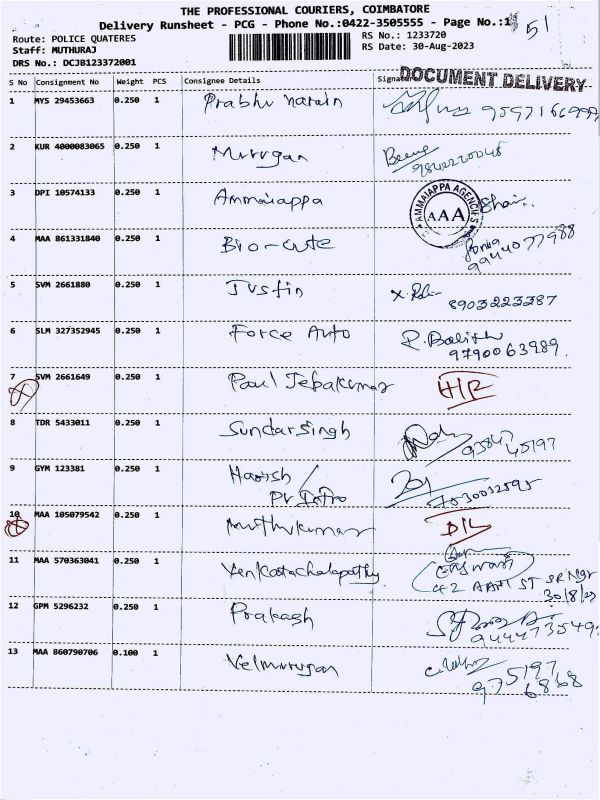 THE PROFESSIONAL COURIERS, COIMBATORE
Delivery Runsheet - PCG - Phone No.:0422-3505555 - Page No.:1 51
Route: POLICE QUATERES RS No.: 1233720
Staff: MUTHURAJ RS Date: 30-Aug-2023
DRS No.: DCJB123372001
DOCUMENT DELIVERY
S No Consignment No Weight PCS Consignee Details
1 MYS 29453663 0.250 1 Prabhu narain
2 KUR 4000083065 0.250 1 Murugan 9842220045
3 DPI 10574133 0.250 1 Ammaiappa AMMAIAPPA AGENCIES AAA
4 MAA 861331840 0.250 1 Bio-cute
9944077988
5 SVM 2661880 0.250 1 Justin 8903223387
6 SLM 327352945 0.250 1 Force Auto
9790063989.
7 SVM 2661649 0.250 1 Paul Jebakumar
8 TDR 5433011 0.250 1 Sundarsingh
9 GYM 123381 0.250 1 Harish
10 MAA 105079542 0.250 1 Muthukumar D/L
11 MAA 570363041 0.250 1 Venkatachalapathy
30/8/23
12 GPM 5296232 0.250 1 Prakash
13 MAA 860790706 0.100 1 Velmurugan
975197
6868